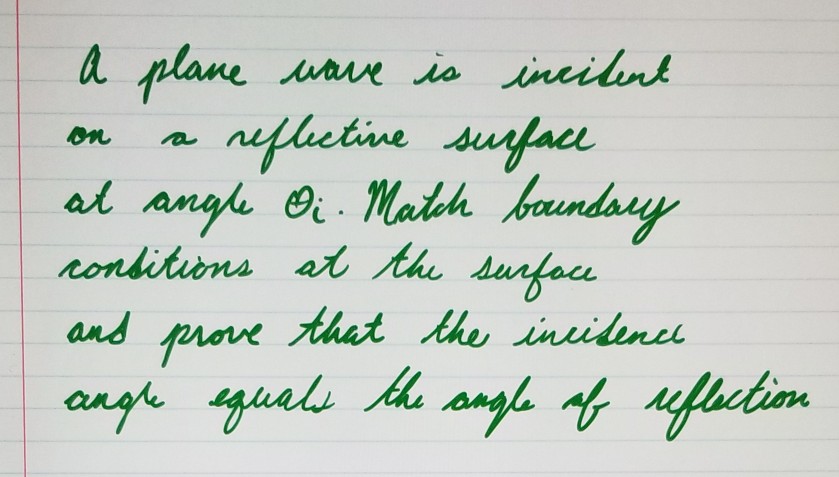 A plane wave is incident
on a reflective surface
at angle θi. Match boundary
conditions at the surface
and prove that the incidence
angle equals the angle of reflection